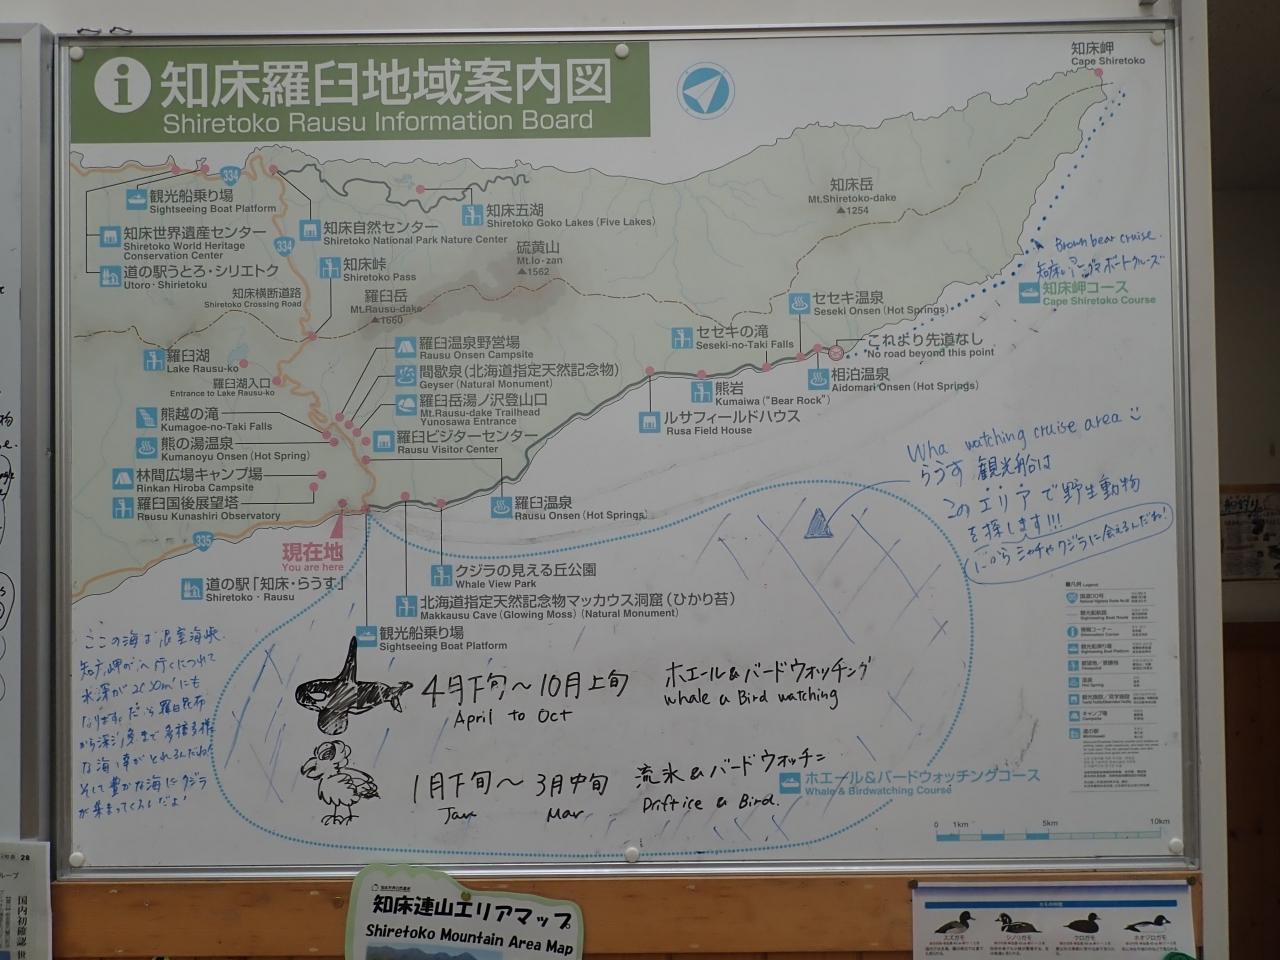 知床羅臼地域案内図
Shiretoko Rausu Information Board
知床岬
Cape Shiretoko
334
観光船乗り場
Sightseeing Boat Platform
知床世界遺産センター
Shiretoko World Heritage
Conservation Center
道の駅うとろ・シリエトク
Utoro · Shirietoku
知床自然センター
Shiretoko National Park Nature Center
334
知床五湖
Shiretoko Goko Lakes (Five Lakes)
知床峠
Shiretoko Pass
知床横断道路
Shiretoko Crossing Road
硫黄山
Mt.Io-zan
▲1562
羅臼岳
Mt.Rausu-dake
▲1660
知床岳
Mt.Shiretoko-dake
▲1254
羅臼湖
Lake Rausu-ko
羅臼湖入口
Entrance to Lake Rausu-ko
羅臼温泉野営場
Rausu Onsen Campsite
間歇泉(北海道指定天然記念物)
Geyser (Natural Monument)
羅臼岳湯ノ沢登山口
Mt.Rausu-dake Trailhead
Yunosawa Entrance
羅臼ビジターセンター
Rausu Visitor Center
熊越の滝
Kumagoe-no-Taki Falls
熊の湯温泉
Kumanoyu Onsen (Hot Spring)
林間広場キャンプ場
Rinkan Hiroba Campsite
羅臼国後展望塔
Rausu Kunashiri Observatory
羅臼温泉
Rausu Onsen (Hot Springs)
セセキの滝
Seseki-no-Taki Falls
セセキ温泉
Seseki Onsen (Hot Springs)
これより先道なし
No road beyond this point
相泊温泉
Aidomari Onsen (Hot Springs)
熊岩
Kumaiwa ("Bear Rock")
ルサフィールドハウス
Rusa Field House
Brown bear cruise.
知床岬コース
Cape Shiretoko Course
335
現在地
You are here
道の駅「知床・らうす」
Shiretoko · Rausu
クジラの見える丘公園
Whale View Park
北海道指定天然記念物マッカウス洞窟(ひかり苔)
Makkausu Cave (Glowing Moss) (Natural Monument)
観光船乗り場
Sightseeing Boat Platform
Wha watching cruise area
らうす 観光船は
このエリアで野生動物
を探します!!!
だからシャチやクジラに会えるんだね!
ここの海は根室海峡
4月下旬〜10月上旬
April to Oct
ホエール&バードウォッチング
whale & Bird watching
1月下旬〜3月中旬
Jan Mar
流氷&バードウォッチン
Drift ice & Bird.
ホエール&バードウォッチングコース
Whale & Birdwatching Course
0 1km 5km 10km
知床連山エリアマップ
Shiretoko Mountain Area Map
スズガモ
シノリガモ
クロガモ
ホオジロガモ
国内初確認